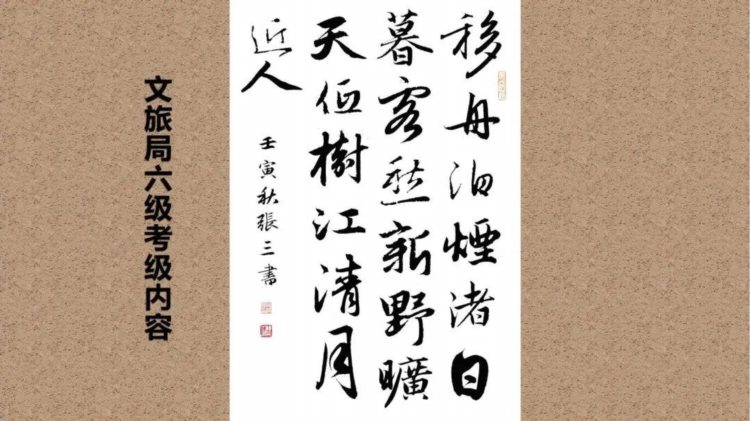 文旅局六级考级内容
移舟泊煙渚日
暮客愁新野曠
天低樹江清月
近人
壬寅秋張三書